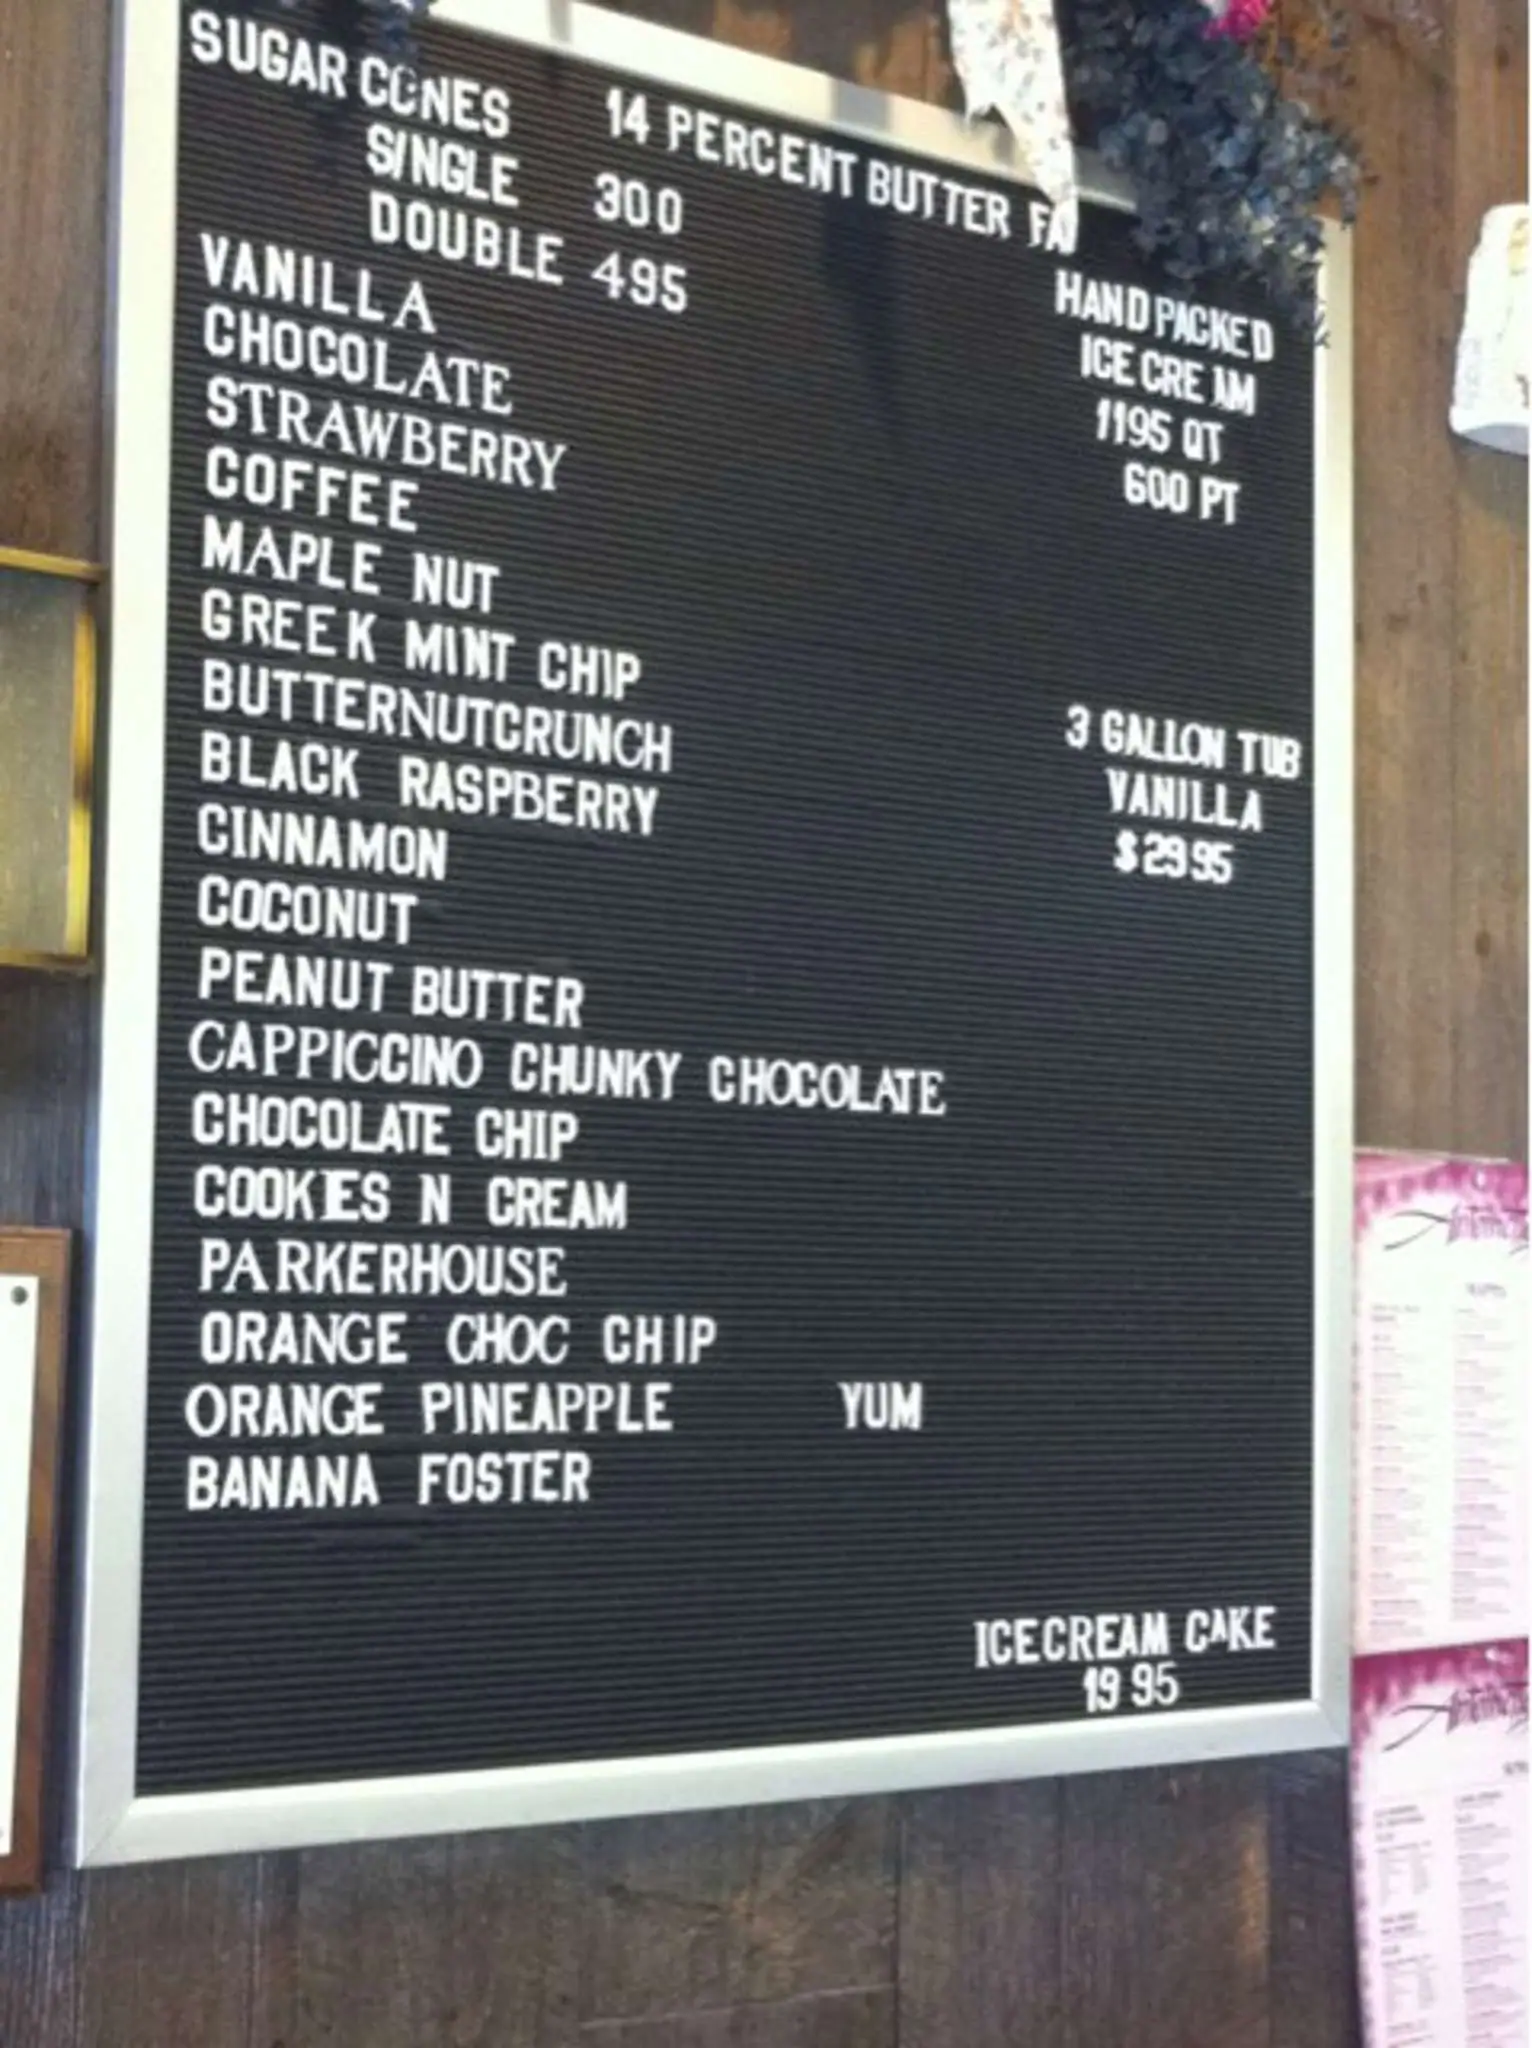 SUGAR CONES 14 PERCENT BUTTER
SINGLE 300
DOUBLE 495
HAND PACKED
ICE CREAM
1195 QT
600 PT
VANILLA
CHOCOLATE
STRAWBERRY
COFFEE
MAPLE NUT
GREEK MINT CHIP
BUTTERNUTCRUNCH
BLACK RASPBERRY
CINNAMON
COCONUT
PEANUT BUTTER
CAPPICCINO CHUNKY CHOCOLATE
CHOCOLATE CHIP
COOKIES N CREAM
PARKERHOUSE
ORANGE CHOC CHIP
ORANGE PINEAPPLE YUM
BANANA FOSTER
3 GALLON TUB
VANILLA
$2995
ICECREAM CAKE
19 95